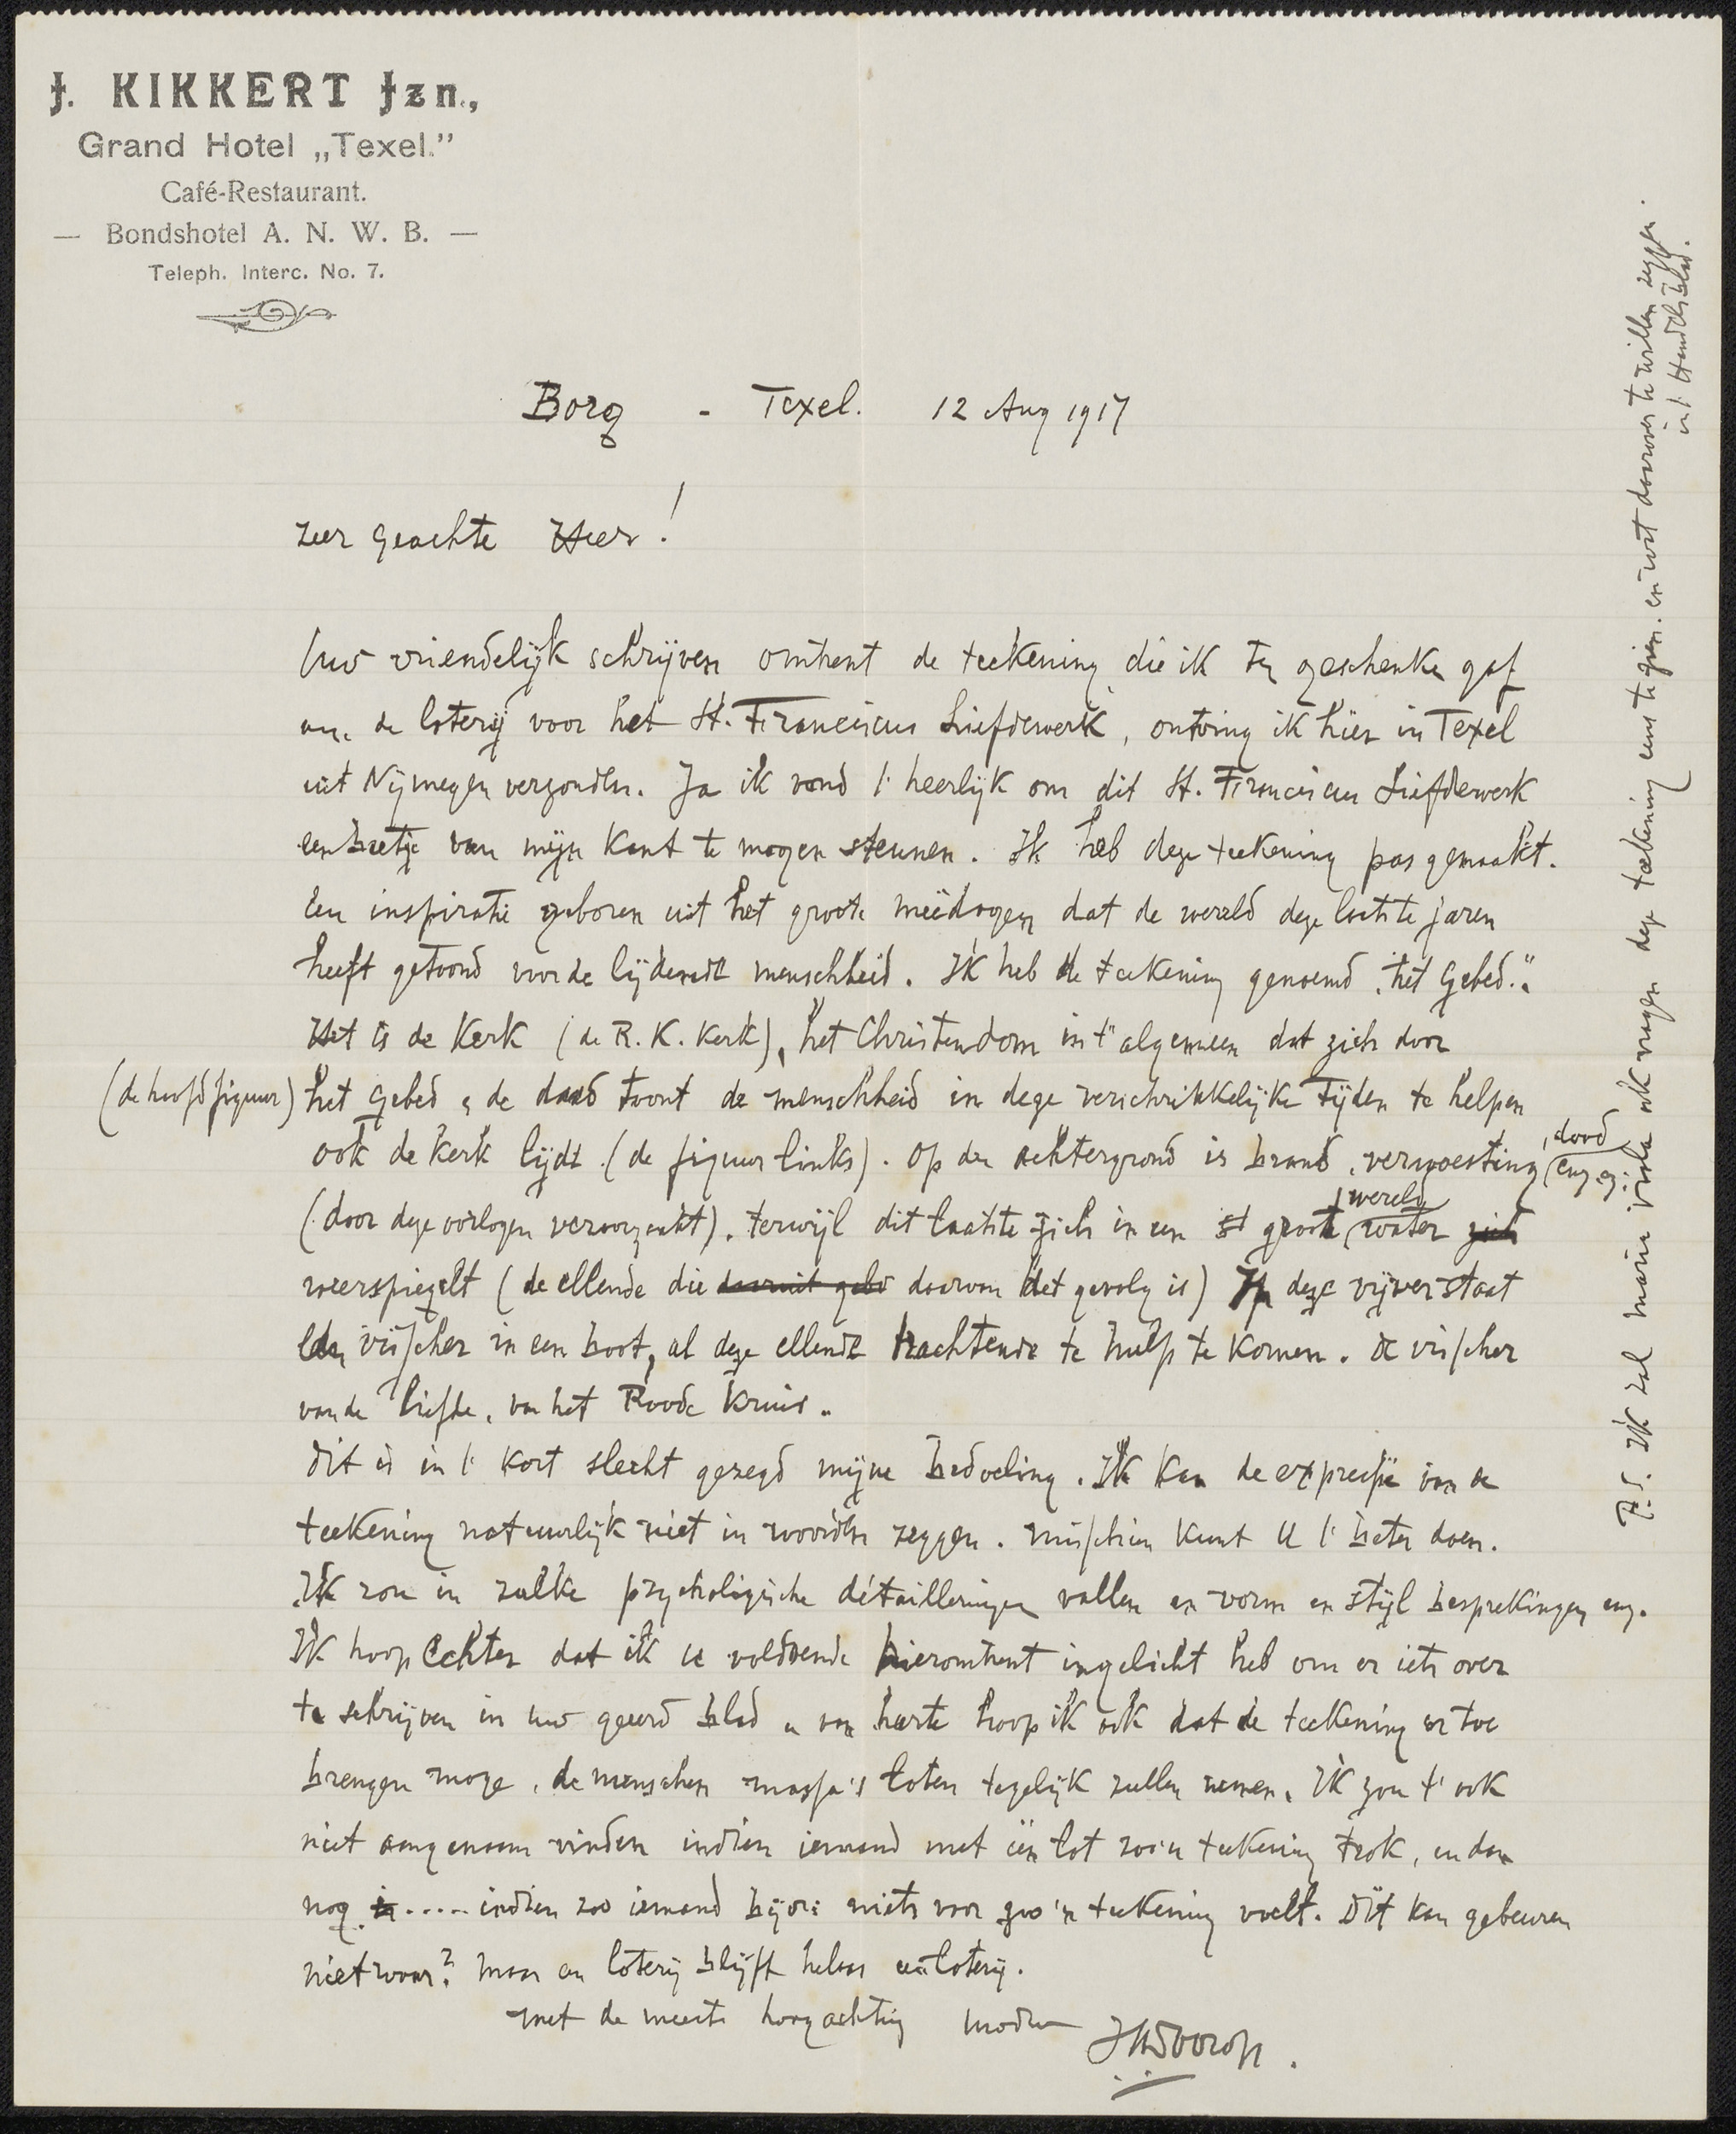 J. KIKKERT Jzn.,
Grand Hotel „Texel.”
Café-Restaurant.
— Bondshotel A. N. W. B. —
Teleph. Interc. No. 7.
Borg - Texel. 12 Aug 1917
zeer geachte Heer!
Uw vriendelijk schrijven omtrent de teekening die ik ten geschenke gaf
aan de loterij voor het St. Franciscus Liefdewerk, ontving ik hier in Texel
uit Nijmegen verzonden. Ja ik vond 't heerlijk om dit St. Franciscus Liefdewerk
een beetje van mijn kant te mogen steunen. Ik heb deze teekening pas gemaakt.
Een inspiratie geboren uit het groote meêdogen dat de wereld deze laatste jaren
heeft getoond voor de lijdende menschheid. Ik heb de teekening genoemd „het Gebed.“
Het is de Kerk (de R. K. Kerk), het Christendom in 't algemeen dat zich door
(de hoofdfiguur) het Gebed & de daad toont de menschheid in deze verschrikkelijke Tijden te helpen
ook de Kerk lijdt (de figuur links). Op den achtergrond is brand, verwoesting, dood enz. enz.
(door deze oorlogen veroorzaakt). terwijl dit laatste zich in een st groot wereld water zich
weerspiegelt (de ellende die daaruit gebo daarvan het gevolg is) Op deze vijver staat
een visscher in een boot, al deze ellende trachtende te hulp te komen. de visscher
van de liefde, van het Roode Kruis.
Dit is in 't kort slecht gezegd mijne bedoeling. Ik kan de expressie van de
teekening natuurlijk niet in woorden zeggen. misschien kunt U 't beter doen.
Ik zou in zulke psychologische détailleringen vallen en vorm en stijl besprekingen enz.
Ik hoop echter dat ik u voldoende hieromtrent ingelicht heb om er iets over
te schrijven in uw geeerd blad & van harte hoop ik ook dat de teekening er toe
brengen moge, de menschen massa's loten tegelijk zullen nemen. Ik zou 't ook
niet aangenaam vinden indien iemand met één lot zoo'n teekening trok, en dan
nog is ..... indien zoo iemand bijv: niets voor zoo'n teekening voelt. Dit kan gebeuren
nietwaar? maar een loterij blijft helaas een loterij.
met de meeste hoogachting
JthToorop.
P.S. Ik zal maria viola ook vragen deze teekening eens te zien. en wat daarover te willen zeggen.
in 't Handelsblad.